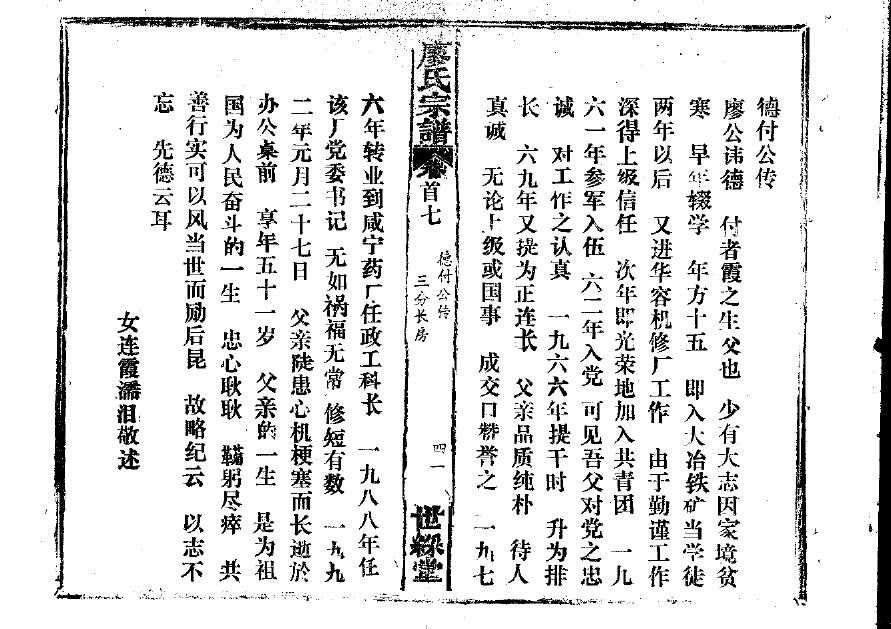 德付公传
廖公讳德　付者霞之生父也　少有大志因家境贫
寒　早年辍学　年方十五　即入大冶铁矿当学徒
两年以后　又进华容机修厂工作　由于勤谨工作
深得上级信任　次年即光荣地加入共青团　一九
六一年参军入伍　六二年入党　可见吾父对党之忠
诚　对工作之认真　一九六六年提干时　升为排
长　六九年又提为正连长　父亲品质纯朴　待人
真诚　无论上级或国事　成交口赞誉之　一九七
廖氏宗譜
卷首七
德付公传
三分长房
四一
世綵堂
六年转业到咸宁药厂任政工科长　一九八八年任
该厂党委书记　无如祸福无常　修短有数　一九九
二年元月二十七日　父亲陡患心机梗塞而长逝於
办公桌前　享年五十一岁　父亲的一生　是为祖
国为人民奋斗的一生　忠心耿耿　鞠躬尽瘁　共
善行实可以风当世而励后昆　故略纪云　以志不
忘　先德云耳
女连霞潘泪敬述